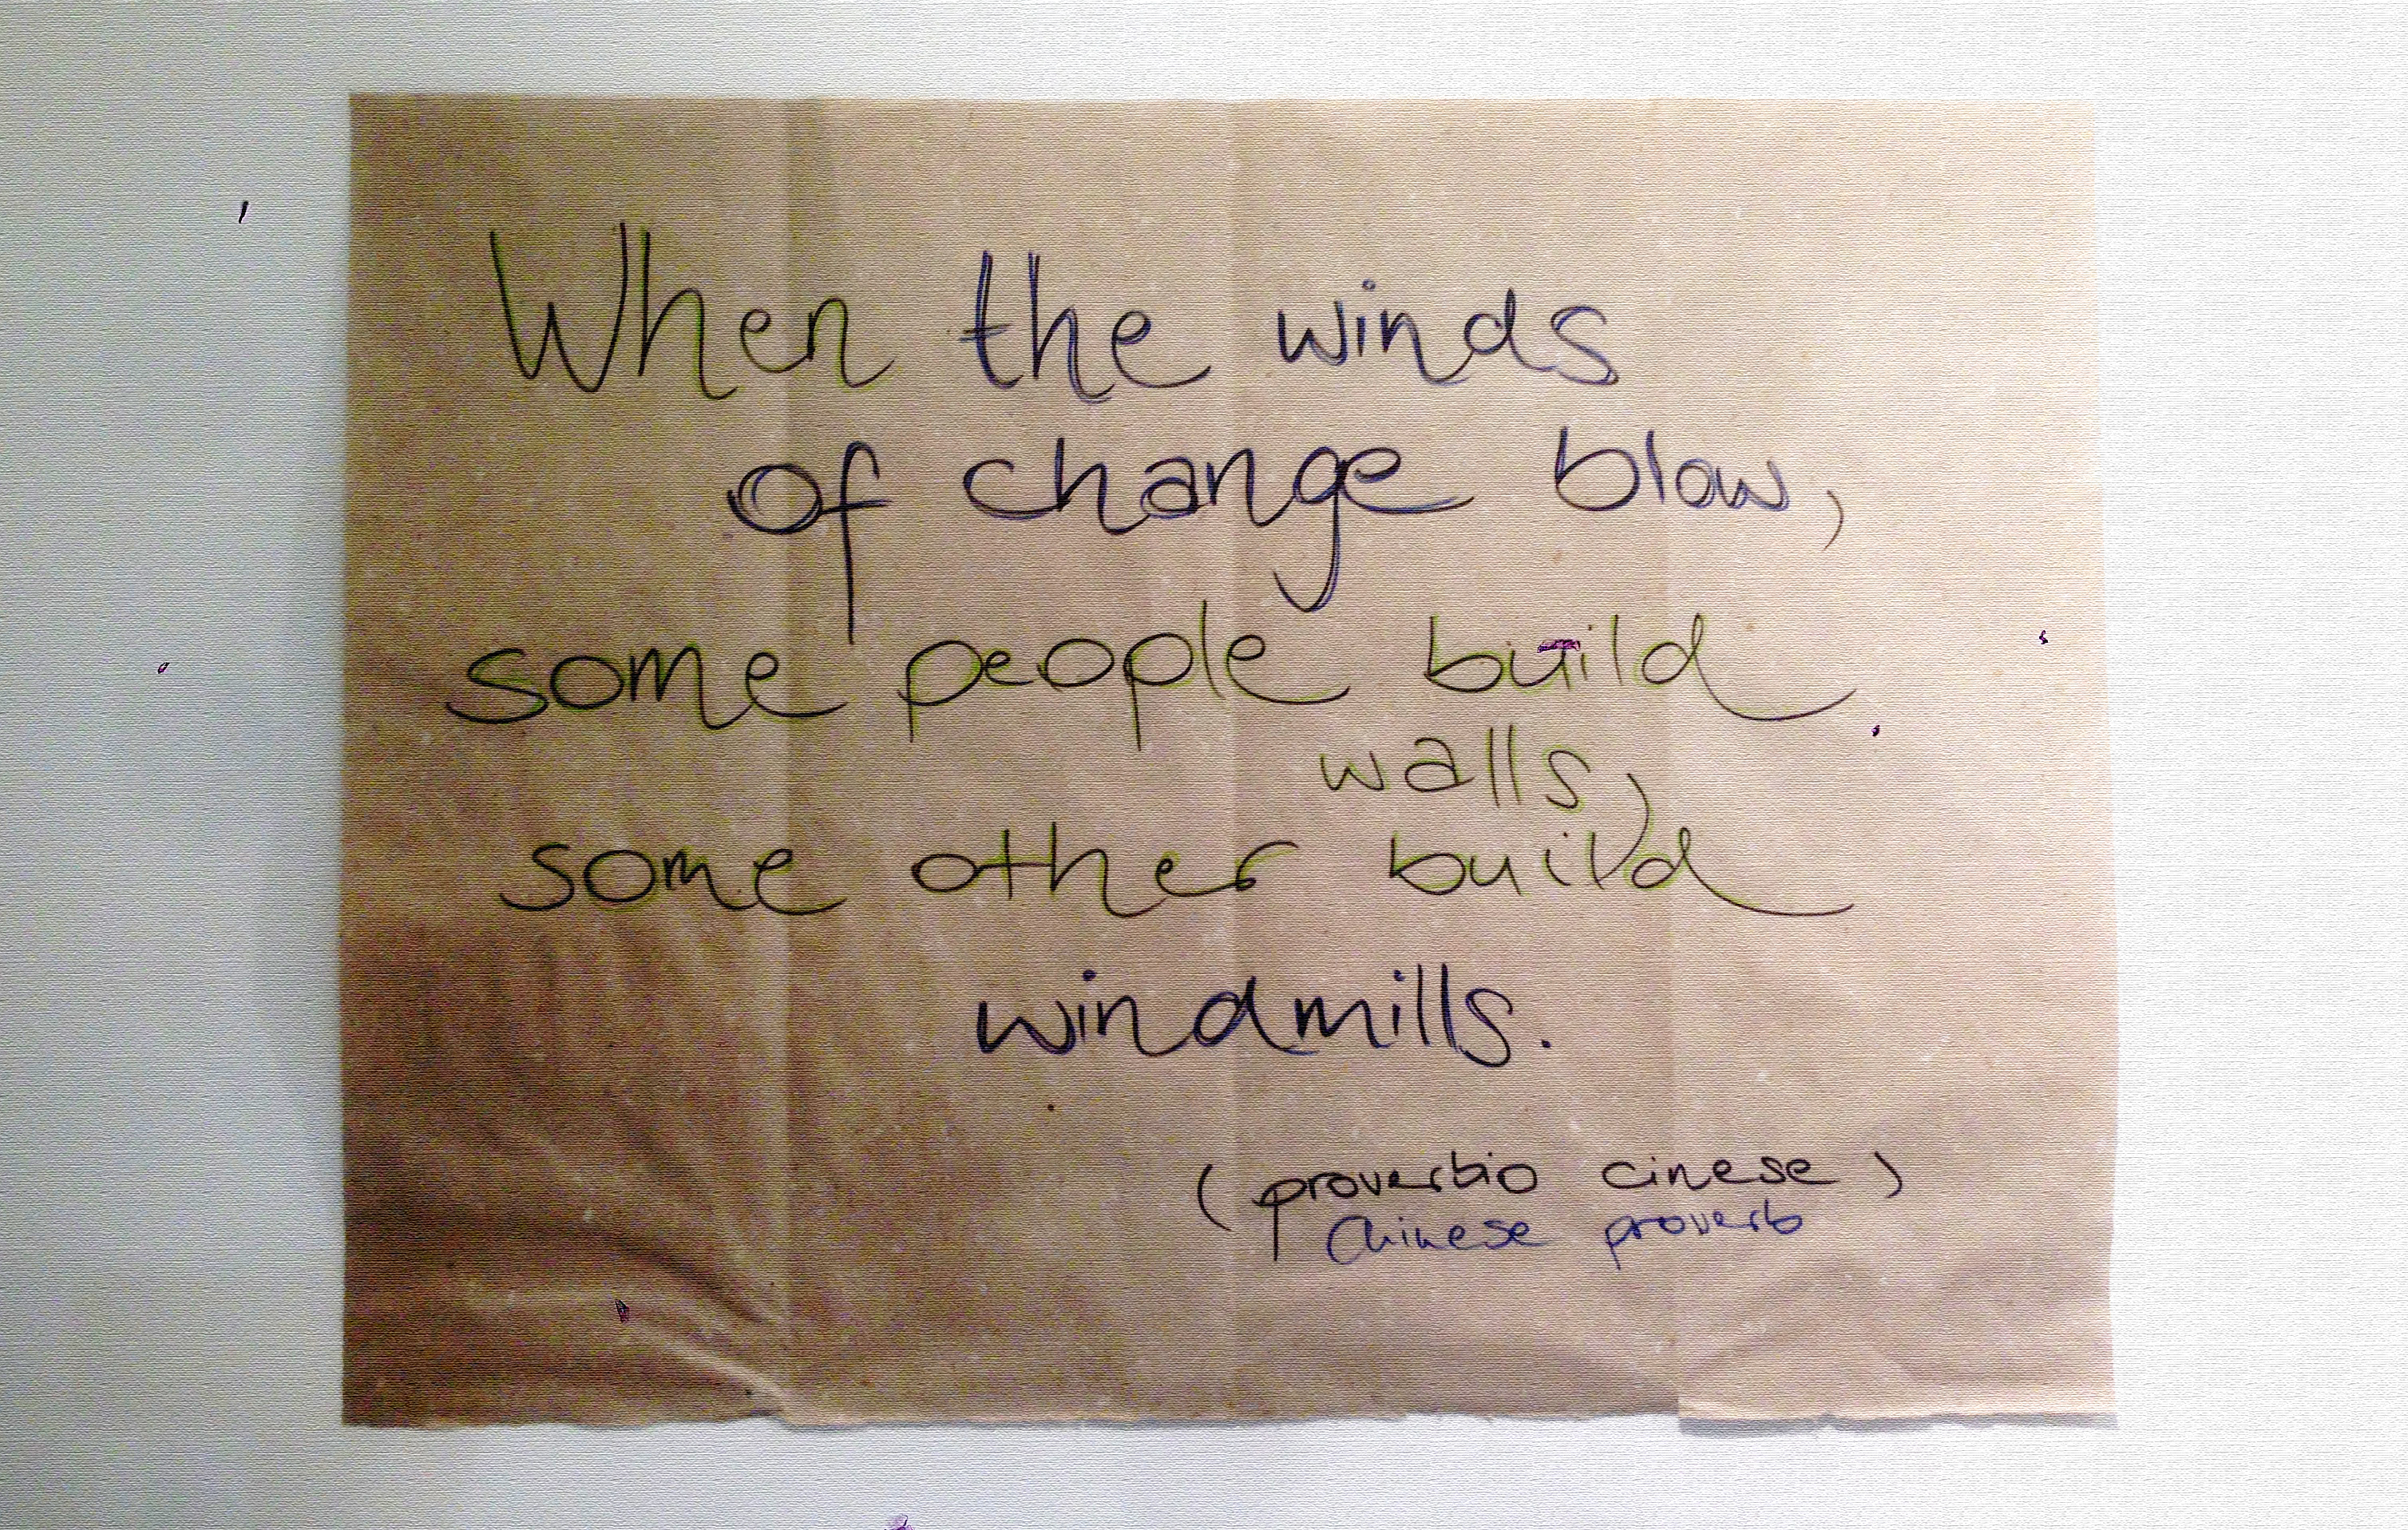 When the winds
of change blow,
some people build
walls,
some other build
windmills.
(proverbio cinese)
Chinese proverb